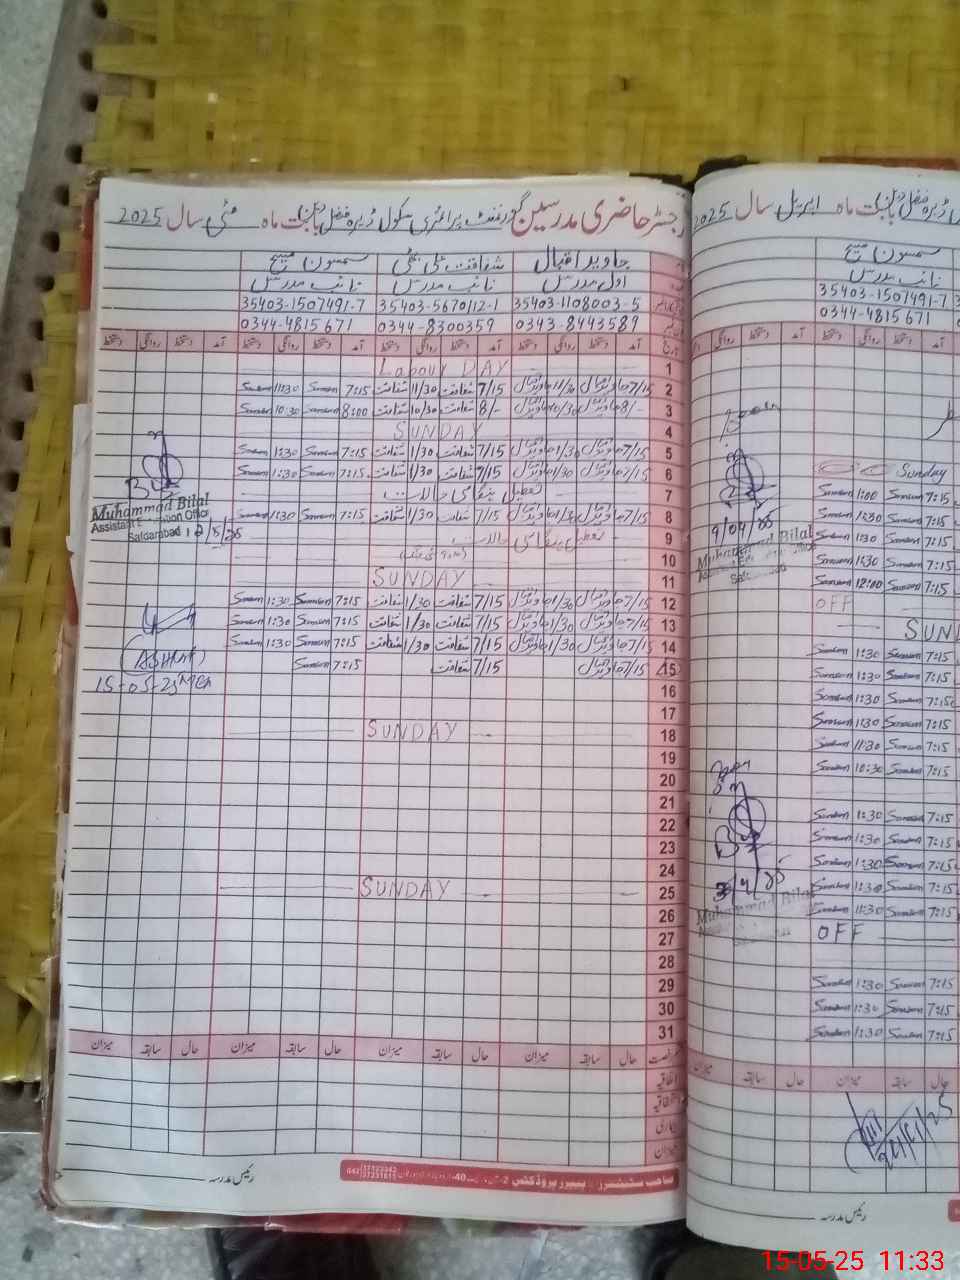 رجسٹر حاضری مدرسین گورنمنٹ پرائمری سکول ڈیرہ فضل بابت ماہ مئی سال 2025
جاوید اقبال شفاقت سمسون مسیح
اول مدرس نائب مدرس نائب مدرس
35403-1108003-5 35403-5670112-1 35403-1507491-7
0343-8443589 0344-8300359 0344-4815671
تاریخ آمد دستخط روانگی دستخط آمد دستخط روانگی دستخط آمد دستخط روانگی دستخط آمد دستخط روانگی دستخط
1 Labour DAY
2 7/15 جاوید اقبال 11/30 جاوید اقبال 7/15 شفاقت 11/30 شفاقت 7:15 Samson 11:30 Samson
3 8/- جاوید اقبال 10/30 جاوید اقبال 8/- شفاقت 10/30 شفاقت 8:00 Samson 10:30 Samson
4 SUNDAY
5 7/15 جاوید اقبال 1/30 جاوید اقبال 7/15 شفاقت 1/30 شفاقت 7:15 Samson 1:30 Samson
6 7/15 جاوید اقبال 1/30 جاوید اقبال 7/15 شفاقت 1/30 شفاقت 7:15 Samson 1:30 Samson
7 تعطیل ہنگامی حالات
8 7/15 جاوید اقبال 1/30 جاوید اقبال 7/15 شفاقت 1/30 شفاقت 7:15 Samson 1:30 Samson
9 تعطیل ہنگامی حالات
10
11 SUNDAY
12 7/15 جاوید اقبال 1/30 جاوید اقبال 7/15 شفاقت 1/30 شفاقت 7:15 Samson 1:30 Samson
13 7/15 جاوید اقبال 1/30 جاوید اقبال 7/15 شفاقت 1/30 شفاقت 7:15 Samson 1:30 Samson
14 7/15 جاوید اقبال 1/30 جاوید اقبال 7/15 شفاقت 1/30 شفاقت 7:15 Samson 1:30 Samson
15 7/15 جاوید اقبال 7/15 شفاقت 7:15 Samson
16
17
18 SUNDAY
19
20
21
22
23
24
25 SUNDAY
26
27
28
29
30
31
Muhammad Bilal
Assistant Education Officer
Safdarabad 12/5/25
(ASHRAF)
15-05-25 MEA
حال سابقہ میزان حال سابقہ میزان حال سابقہ میزان حال سابقہ میزان
اتفاقیہ
بیماری
میزان
رئیس مدرسہ
بابت ماہ اپریل سال 2025
سمسون مسیح
نائب مدرس
35403-1507491-7
0344-4815671
آمد دستخط روانگی دستخط
Sunday
7:15 Samson 1:00 Samson
7:15 Samson 1:30 Samson
7:15 Samson 1:30 Samson
7:15 Samson 1:30 Samson
7:15 Samson 12:00 Samson
OFF
SUN
7:15 Samson 1:30 Samson
7:15 Samson 1:30 Samson
7:15 Samson 1:30 Samson
7:15 Samson 1:30 Samson
7:15 Samson 11:30 Samson
7:15 Samson 10:30 Samson
7:15 Samson 1:30 Samson
7:15 Samson 1:30 Samson
7:15 Samson 1:30 Samson
7:15 Samson 1:30 Samson
7:15 Samson 11:30 Samson
OFF
7:15 Samson 1:30 Samson
7:15 Samson 1:30 Samson
7:15 Samson 1:30 Samson
9/04/25
Muhammad Bilal
Muhammad Bilal
حال سابقہ میزان حال سابقہ میزان
رئیس مدرسہ
15-05-25 11:33